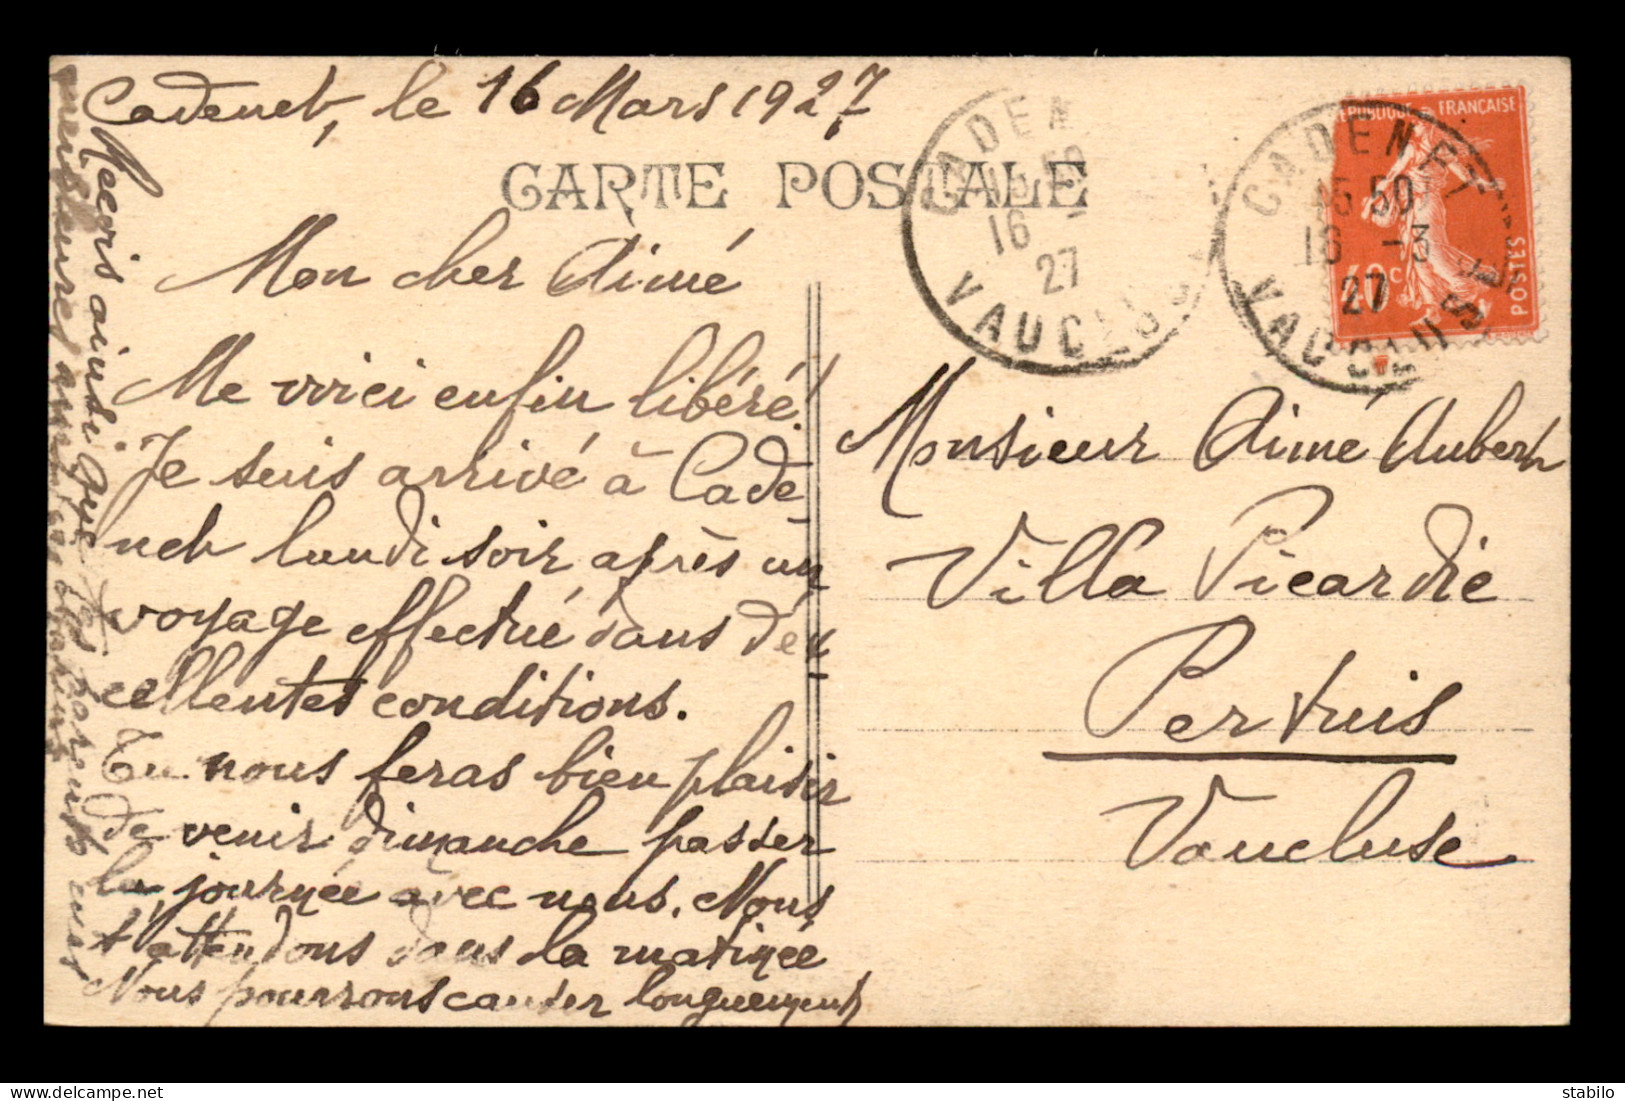 Cadenet, le 16 Mars 1927
CARTE POSTALE
Mon cher Aimé
Me voici enfin libéré!
Je suis arrivé à Cade
net lundi soir après un
voyage effectué dans d'ex
cellentes conditions.
Tu nous feras bien plaisir
de venir dimanche passer
la journée avec nous. Nous
t'attendons dans la matinée
Nous pourrons causer longuement
Reçois ainsi que tes parents
meilleures amitiés
CADEN
15 50
16 -
27
VAUCLUS
CADENET
15 50
16 -3
27
VAUCLUSE
REPUBLIQUE FRANÇAISE
POSTES
40 c
Monsieur Aimé Aubert
Villa Picardie
Pertuis
Vaucluse
delcampe.net
stabilo